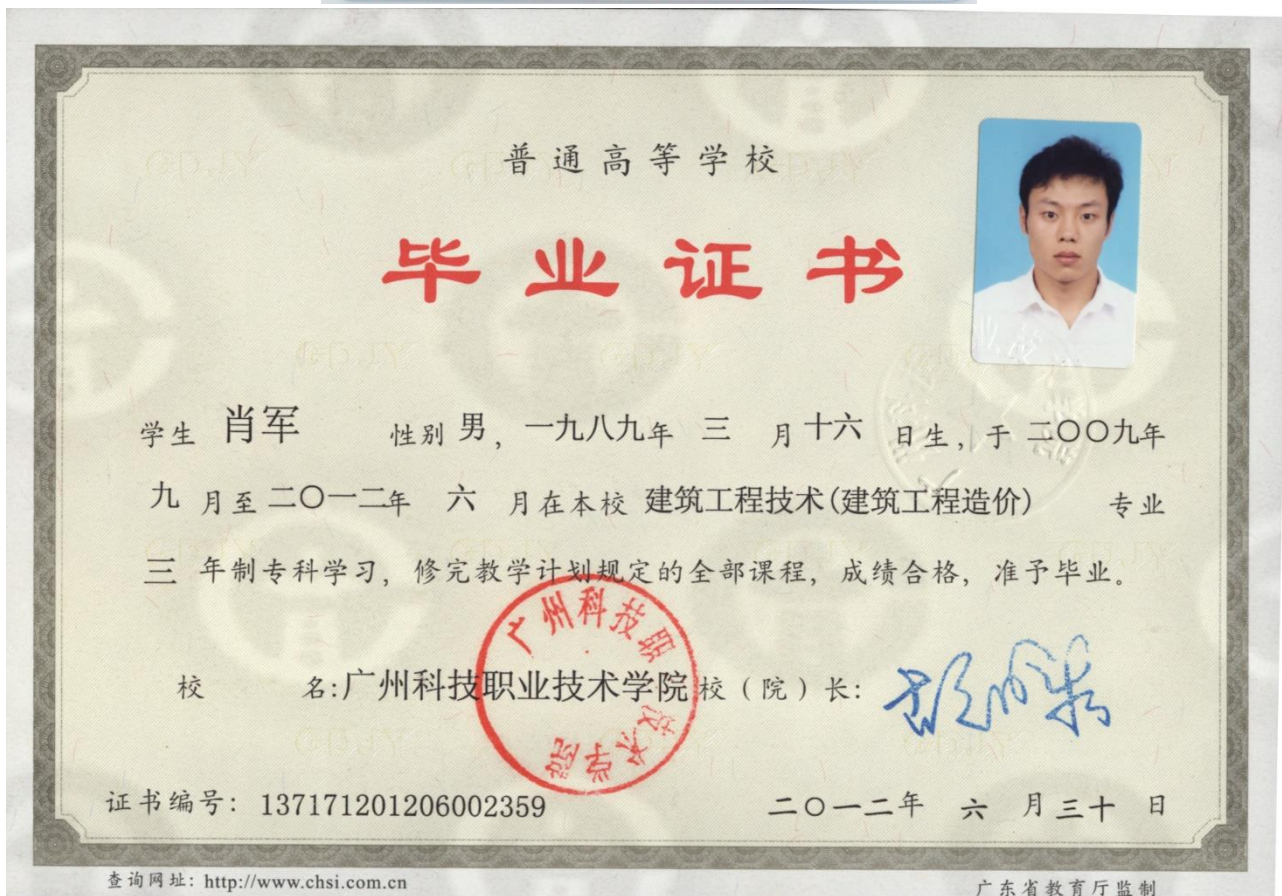 普通高等学校
毕业证书
学生 肖军 性别 男，一九八九年 三 月十六 日生，于 二〇〇九年
九 月至二〇一二年 六 月在本校 建筑工程技术(建筑工程造价) 专业
三 年制专科学习，修完教学计划规定的全部课程，成绩合格，准予毕业。
广州科技职业技术学院
校 名:广州科技职业技术学院 校（院）长:
证书编号：137171201206002359 二〇一二年 六 月三十 日
查询网址: http://www.chsi.com.cn 广东省教育厅监制